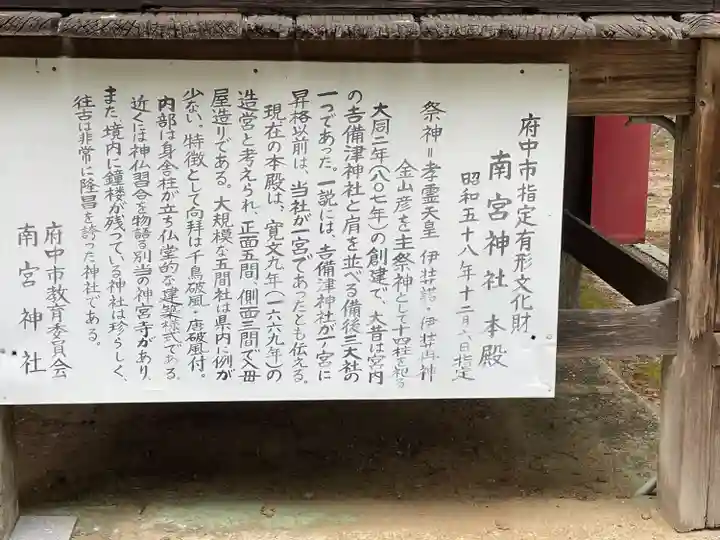 府中市指定有形文化財
南宮神社本殿
昭和五十八年十二月八日指定
祭神=孝霊天皇 伊弉諾・伊弉冉神
金山彦を主祭神として十四柱を祀る
大同二年(八〇七年)の創建で、大昔は宮内
の吉備津神社と肩を並べる備後三大社の
一つであった。一説には、吉備津神社が一宮に
昇格以前は、当社が一宮であったとも伝える。
現在の本殿は、寛文九年(一六六九年)の
造営と考えられ、正面五間、側面三間で入母
屋造りである。大規模な五間社は県内に例が
少ない。特徴として向拝は千鳥破風・唐破風付。
内部は身舎柱が立ち仏堂的な建築様式である。
近くには神仏習合を物語る別当の神宮寺があり、
また、境内に鐘楼が残っている神社は珍らしく、
往古は非常に隆昌を誇った神社である。
府中市教育委員会
南宮神社